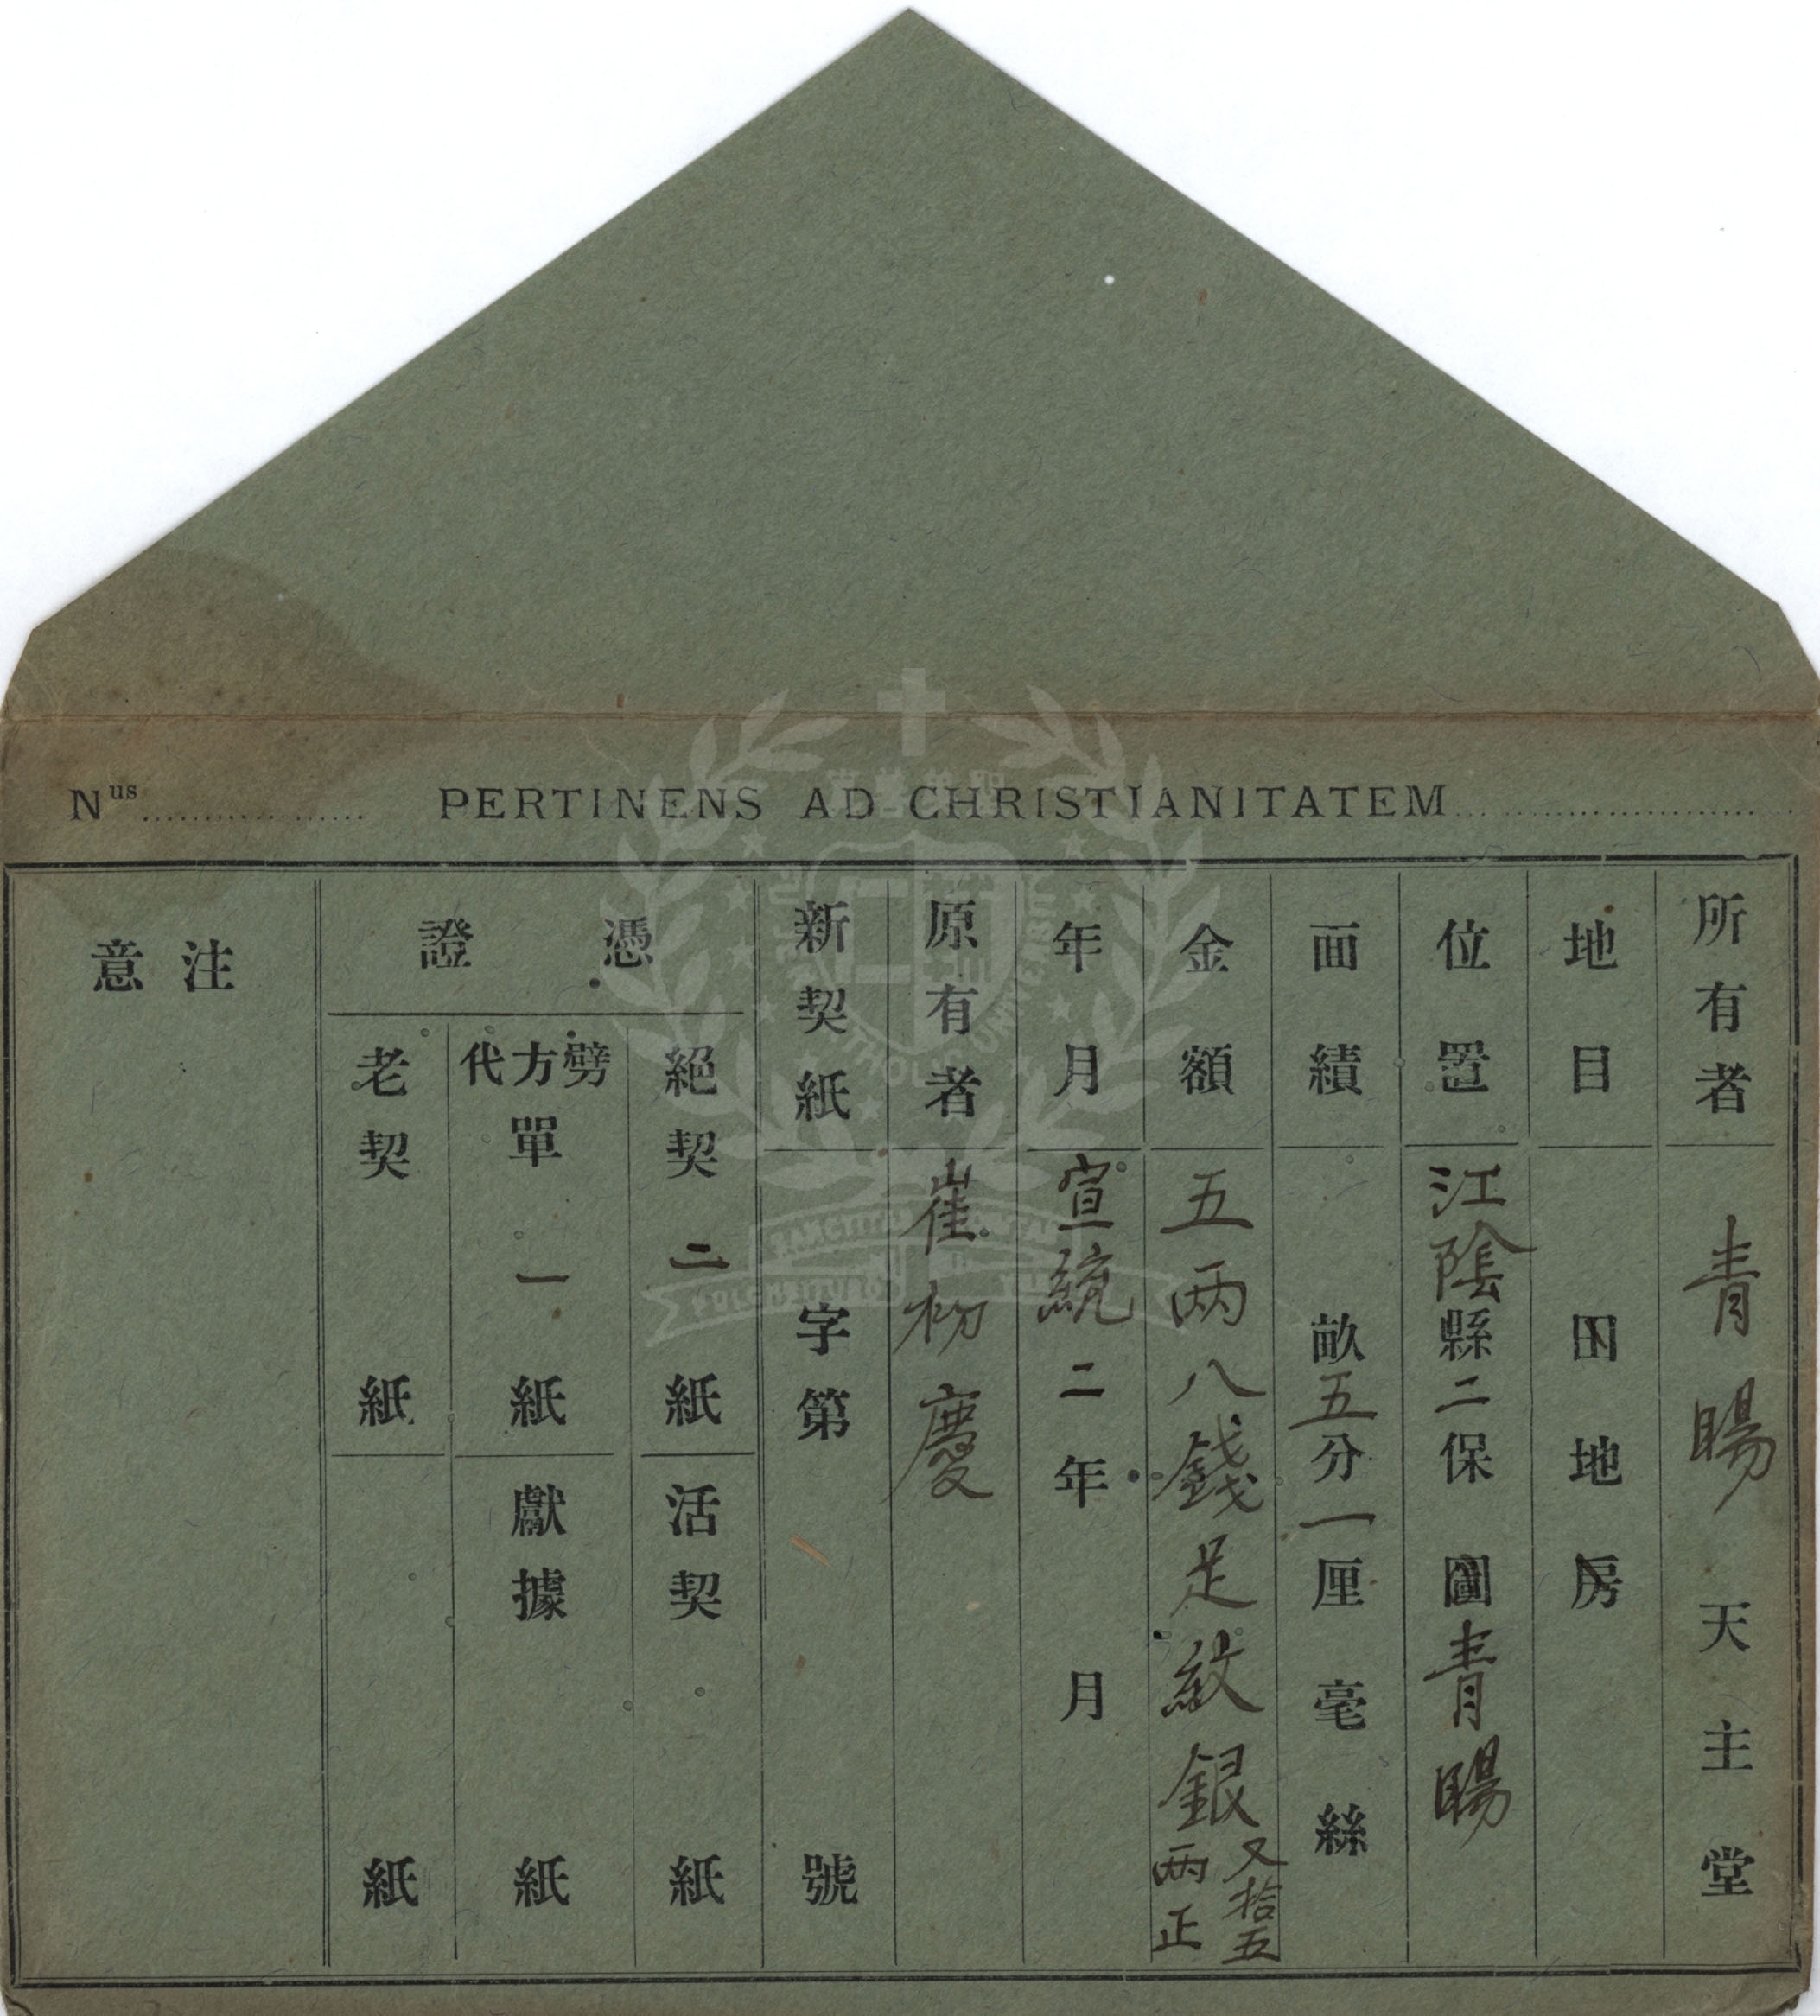 Nus.................. PERTINENS AD CHRISTIANITATEM..............................
所有者 青暘天主堂
地目 田地房
位置 江陰縣二保圖青暘
面績 畝五分一厘毫絲
金額 五两八錢足紋銀又拾五两正
年月 宣統二年 月
原有者 崔初慶
新契紙 字第 號
憑證
絕契二紙 活契 紙
劈方代單一紙 獻據 紙
老契 紙 紙
注意